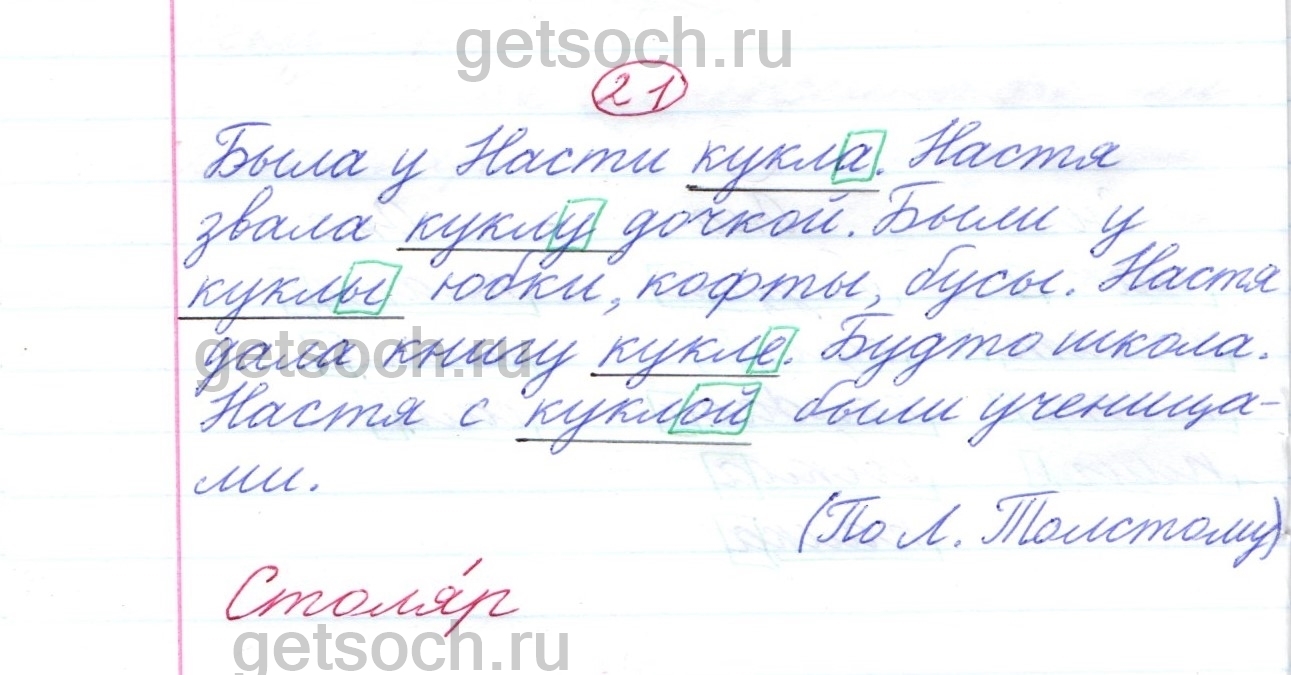 getsoch.ru
21
Была у Насти кукла. Настя
звала куклу дочкой. Были у
куклы юбки, кофты, бусы. Настя
дала книгу кукле. Будто школа.
getsoch.ru
Настя с куклой были ученица-
ми.
(По Л. Толстому)
Столя́р
getsoch.ru